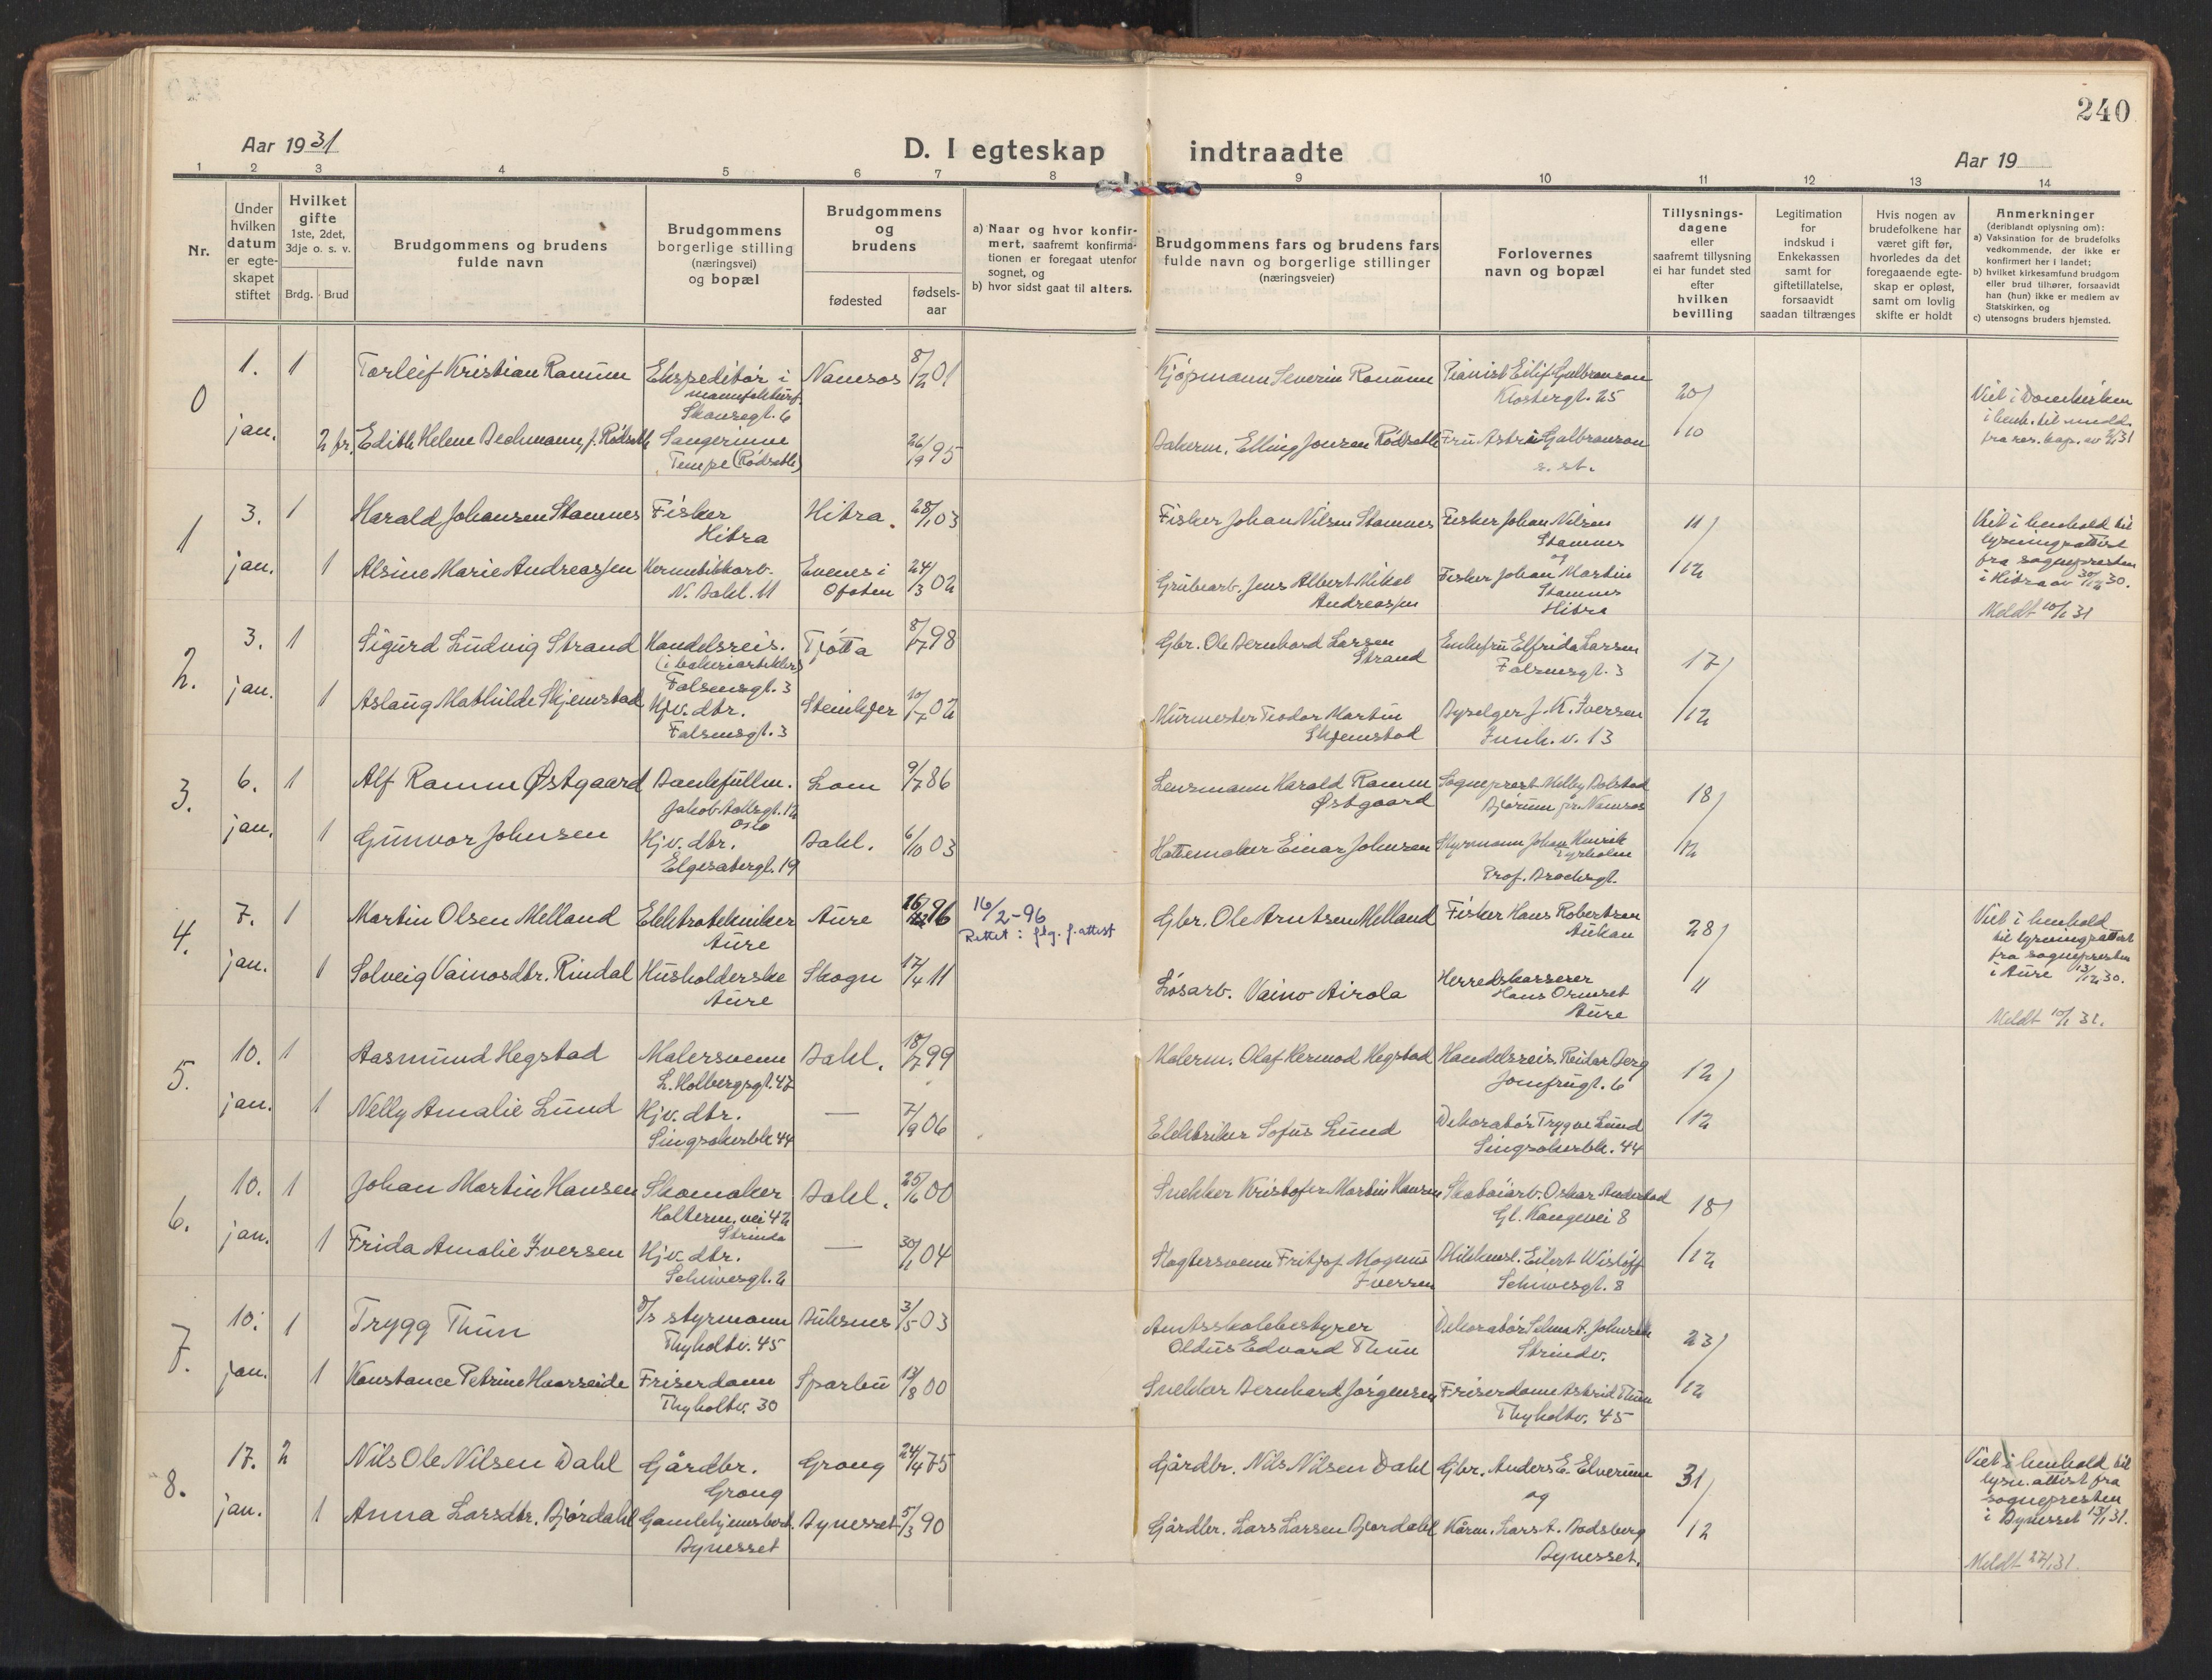 240
Aar 1931
D. I egteskap indtraadte
Aar 19
1 2 3 4 5 6 7 8 9 10 11 12 13 14
Nr.
Under hvilken datum er egteskapet stiftet
Hvilket gifte
1ste, 2det, 3dje o. s. v.
Brdg. Brud
Brudgommens og brudens fulde navn
Brudgommens borgerlige stilling (næringsvei) og bopæl
Brudgommens og brudens
fødested
fødsels-aar
a) Naar og hvor konfirmert, saafremt konfirmationen er foregaat utenfor sognet, og
b) hvor sidst gaat til alters.
Brudgommens fars og brudens fars fulde navn og borgerlige stillinger (næringsveier)
Forlovernes navn og bopæl
Tillysningsdagene eller saafremt tillysning ei har fundet sted efter hvilken bevilling
Legitimation for indskud i Enkekassen samt for giftetillatelse, forsaavidt saadan tiltrænges
Hvis nogen av brudefolkene har været gift før, hvorledes da det foregaaende egteskap er opløst, samt om lovlig skifte er holdt
Anmerkninger (deriblandt oplysning om):
a) Vaksination for de brudefolks vedkommende, der ikke er konfirmert her i landet;
b) hvilket kirkesamfund brudgom eller brud tilhører, forsaavidt han (hun) ikke er medlem av Statskirken, og
c) utensogns bruders hjemsted.
0
1. jan.
1 Torleif Kristian Ramm
Ekspeditør i
Skansegt. 6
Namsos 8/2 01
Kjøpmann Severin Ramm
Pianist Eilif Gulbranson
Klostergt. 25
20/10
Viet i Domkirken
i henh. til meld.
fra res. kap. av
2 fr. Edith Helene Bechmann, f. Rødseth
Sangerinne
Tempe (Rødseth)
26/9 95
Bakerm. Elling Jonsen Rødseth
Fru Astri Gulbranson
s. st.
1
3. jan.
1 Harald Johansen Stamnes
Fisker
Hitra
Hitra. 28/1 03
Fisker Johan Nilsen Stamnes
Fisker Johan Nilsen
Stamnes
og
11/12
Viet i henhold til
lysningsattest
fra sognepresten
i Hitra av 30/12 30.
Meldt 10/1 31
1 Alsine Marie Andreassen
Hermetikkarb.
N. Bakl. 11
Evenes i
Ofoten
24/3 02
Grubearb. Jens Albert Mikal
Andreassen
Fisker Johan Martin
Stamnes
Hitra
2.
3. jan.
1 Sigurd Ludvig Strand
Handelsreis.
(i bakeriartikler)
Falsensgt. 3
Tjøtta 8/7 98
Gbr. Ole Bernhard Larsen
Strand
Enkefru Elfrida Larsen
Falsensgt. 3
17/12
1 Aslaug Mathilde Skjemstad
Hjv. dtr.
Falsensgt. 3
Steinkjer 10/7 02
Murmester Teodor Martin
Skjemstad
Byselger J. K. Iversen
13
3.
6. jan.
1 Alf Ramm Østgaard
Bankfullm.
Jakob Aallsgt. 12
Oslo
Lom 9/7 86
Lensmann Harald Ramm
Østgaard
Sogneprest Melby Bolstad
Bjørum pr. Namsos
18/12
1 Gunvor Johnsen
Hjv. dtr.
Elgesetergt. 19
Bakl. 6/10 03
Hattemaker Einar Johnsen
Styrmann Johan Henrik
Tyrholm
Prof. Brochsgt.
4.
7. jan.
1 Martin Olsen Melland
Elektrotekniker
Aure
Aure 96
16/2-96
Rettet: flg. f. attest
Gbr. Ole Arntsen Melland
Fisker Hans Robertsen
Aukan
28/11
Viet i henhold
til lysningsattest
fra sognepresten
i Aure 13/12 30.
Meldt 10/1 31.
1 Solveig Vainosdtr. Rindal
Husholderske
Aure
Skogn 17/4 11
Løsarb. Vaino Airola
Herredskasserer
Hans Ormset
Aure
5.
10. jan.
1 Aasmund Hegstad
Malersvenn
L. Holbergsgt. 47
Bakl. 18/7 99
Malerm. Olaf Hermod Hegstad
Handelsreis. Reidar Berg
Jomfrugt. 6
12/12
1 Nelly Amalie Lund
Hjv. dtr.
Singsakerbk. 44
— 7/9 06
Elektriker Sofus Lund
Dekoratør Trygve Lund
Singsakerbk. 44
6.
10. jan.
1 Johan Martin Hansen
Skomaker
Holterm. vei 42
Strinda
Bakl. 25/6 00
Snekker Kristofer Martin Hansen
Skotøiarb. Oskar Anderstad
Gl. Kongevei 8
18/12
1 Frida Amalie Iversen
Hjv. dtr.
Schivesgt. 2
— 30/1 04
Slagtersvenn Fritjof Magnus
Iversen
Blikkensl. Eilert Wisløff
Schivesgt. 8
7.
10. jan.
1 Trygg Thun
d/s styrmann
Thyholtv. 45
Buksnes 3/5 03
Amtsskolebestyrer
Oldus Edvard Thun
Dekoratør Selma A. Johnsen
Strindv.
23/12
1 Konstance Petrine Haarseide
Friserdame
Thyholtv. 30
Sparbu 13/8 00
Snekker Bernhard Jørgensen
Friserdame Astrid Thun
Thyholtv. 45
8.
17. jan.
2 Nils Ole Nilsen Dahl
Gårdbr.
Grong
Grong 24/4 75
Gårdbr. Nils Nilsen Dahl
Gbr. Anders E. Elverum
og
31/12
Viet i henhold til
lysn. attest fra
sognepresten
i Bynesset 13/1 31.
Meldt 27/1 31.
1 Anna Larsdtr. Bjørdahl
Gamlehjemsbest.
Bynesset
Bynesset 5/3 90
Gårdbr. Lars Larsen Bjørdahl
Kårm. Lars A. Bodsberg
Bynesset.